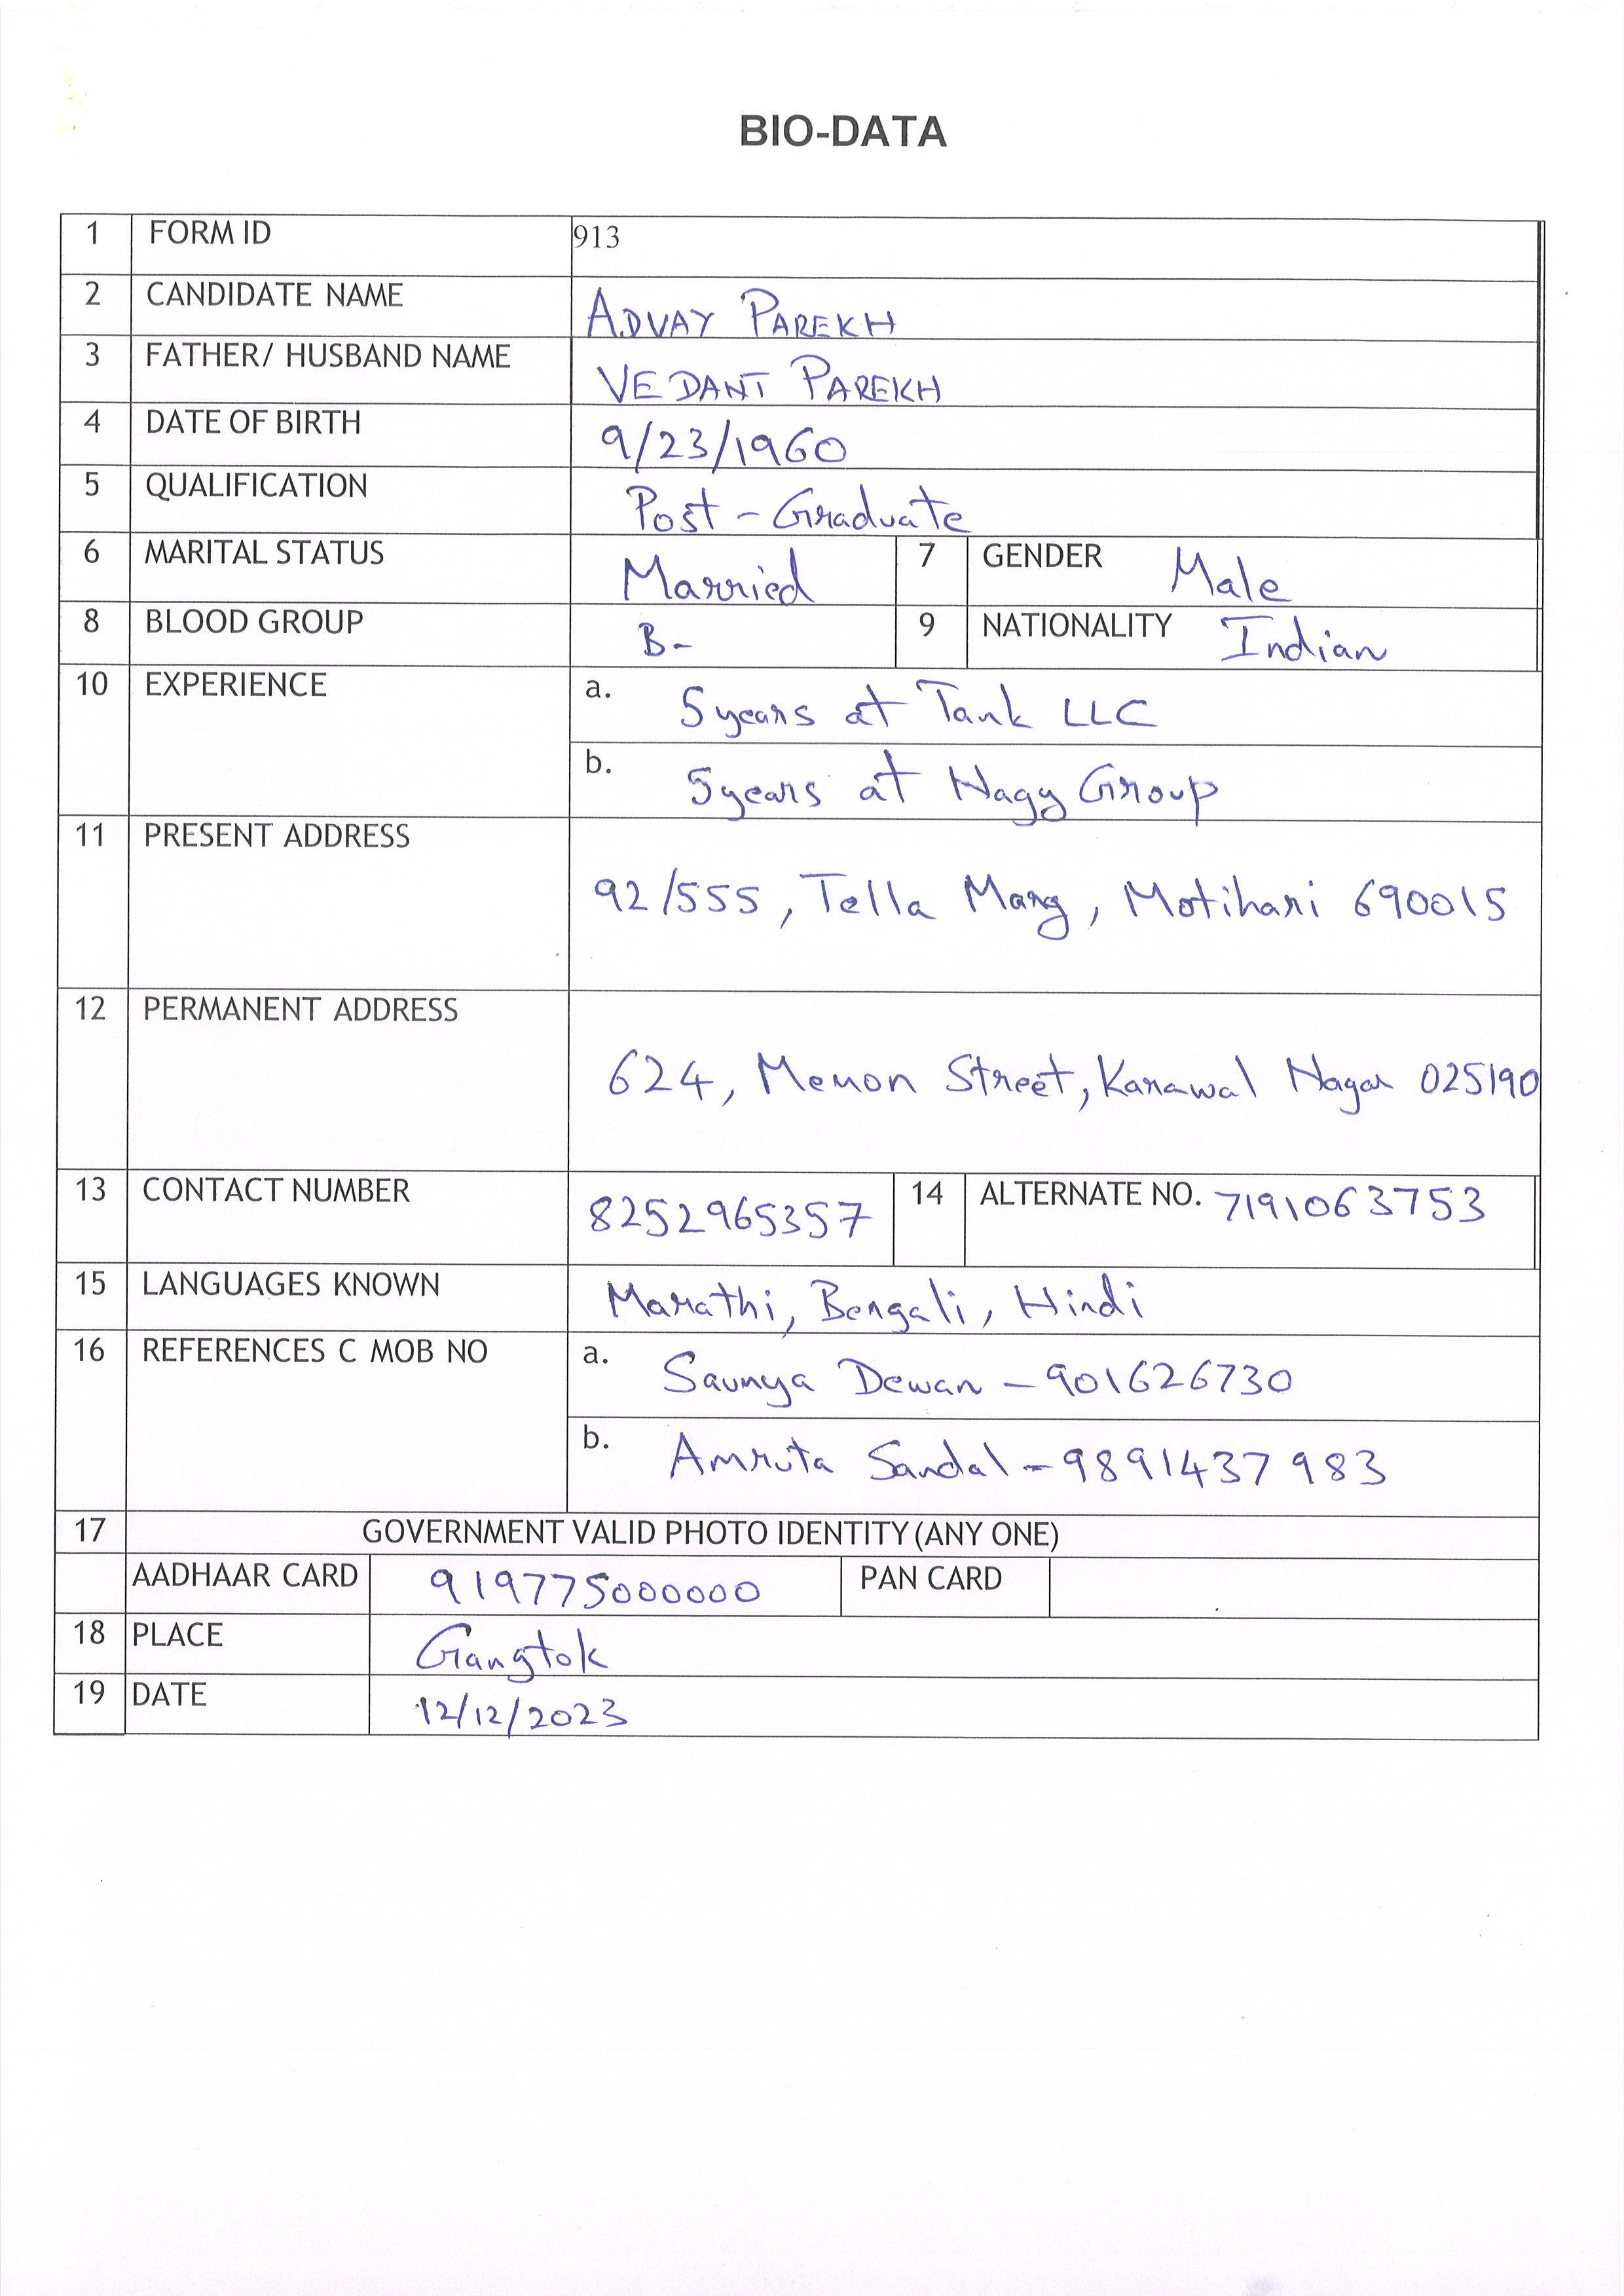 BIO-DATA
1 FORM ID 913
2 CANDIDATE NAME ADVAY PAREKH
3 FATHER/ HUSBAND NAME VEDANT PAREKH
4 DATE OF BIRTH 9/23/1960
5 QUALIFICATION Post-Graduate
6 MARITAL STATUS Married 7 GENDER Male
8 BLOOD GROUP B- 9 NATIONALITY Indian
10 EXPERIENCE a. 5 years at Tank LLC
b. 5 years at Nagy Group
11 PRESENT ADDRESS 92/555, Tella Marg, Motihari 690015
12 PERMANENT ADDRESS 624, Memon Street, Karawal Nagar 025190
13 CONTACT NUMBER 8252965357 14 ALTERNATE NO. 7191063753
15 LANGUAGES KNOWN Marathi, Bengali, Hindi
16 REFERENCES C MOB NO a. Saumya Dewan - 901626730
b. Amruta Sandal - 9891437983
17 GOVERNMENT VALID PHOTO IDENTITY (ANY ONE)
AADHAAR CARD 919775000000 PAN CARD
18 PLACE Gangtok
19 DATE 12/12/2023